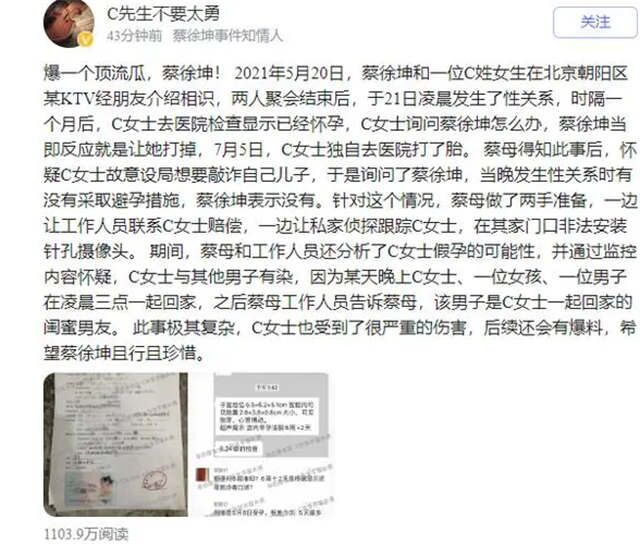 C先生不要太勇
43分钟前 蔡徐坤事件知情人
关注
爆一个顶流瓜，蔡徐坤！ 2021年5月20日，蔡徐坤和一位C姓女生在北京朝阳区
某KTV经朋友介绍相识，两人聚会结束后，于21日凌晨发生了性关系，时隔一
个月后，C女士去医院检查显示已经怀孕，C女士询问蔡徐坤怎么办，蔡徐坤当
即反应就是让她打掉，7月5日，C女士独自去医院打了胎。 蔡母得知此事后，怀
疑C女士故意设局想要敲诈自己儿子，于是询问了蔡徐坤，当晚发生性关系时有
没有采取避孕措施，蔡徐坤表示没有。针对这个情况，蔡母做了两手准备，一边
让工作人员联系C女士赔偿，一边让私家侦探跟踪C女士，在其家门口非法安装
针孔摄像头。 期间，蔡母和工作人员还分析了C女士假孕的可能性，并通过监控
内容怀疑，C女士与其他男子有染，因为某天晚上C女士、一位女孩、一位男子
在凌晨三点一起回家，之后蔡母工作人员告诉蔡母，该男子是C女士一起回家的
闺蜜男友。 此事极其复杂，C女士也受到了很严重的伤害，后续还会有爆料，希
望蔡徐坤且行且珍惜。
1103.9万阅读